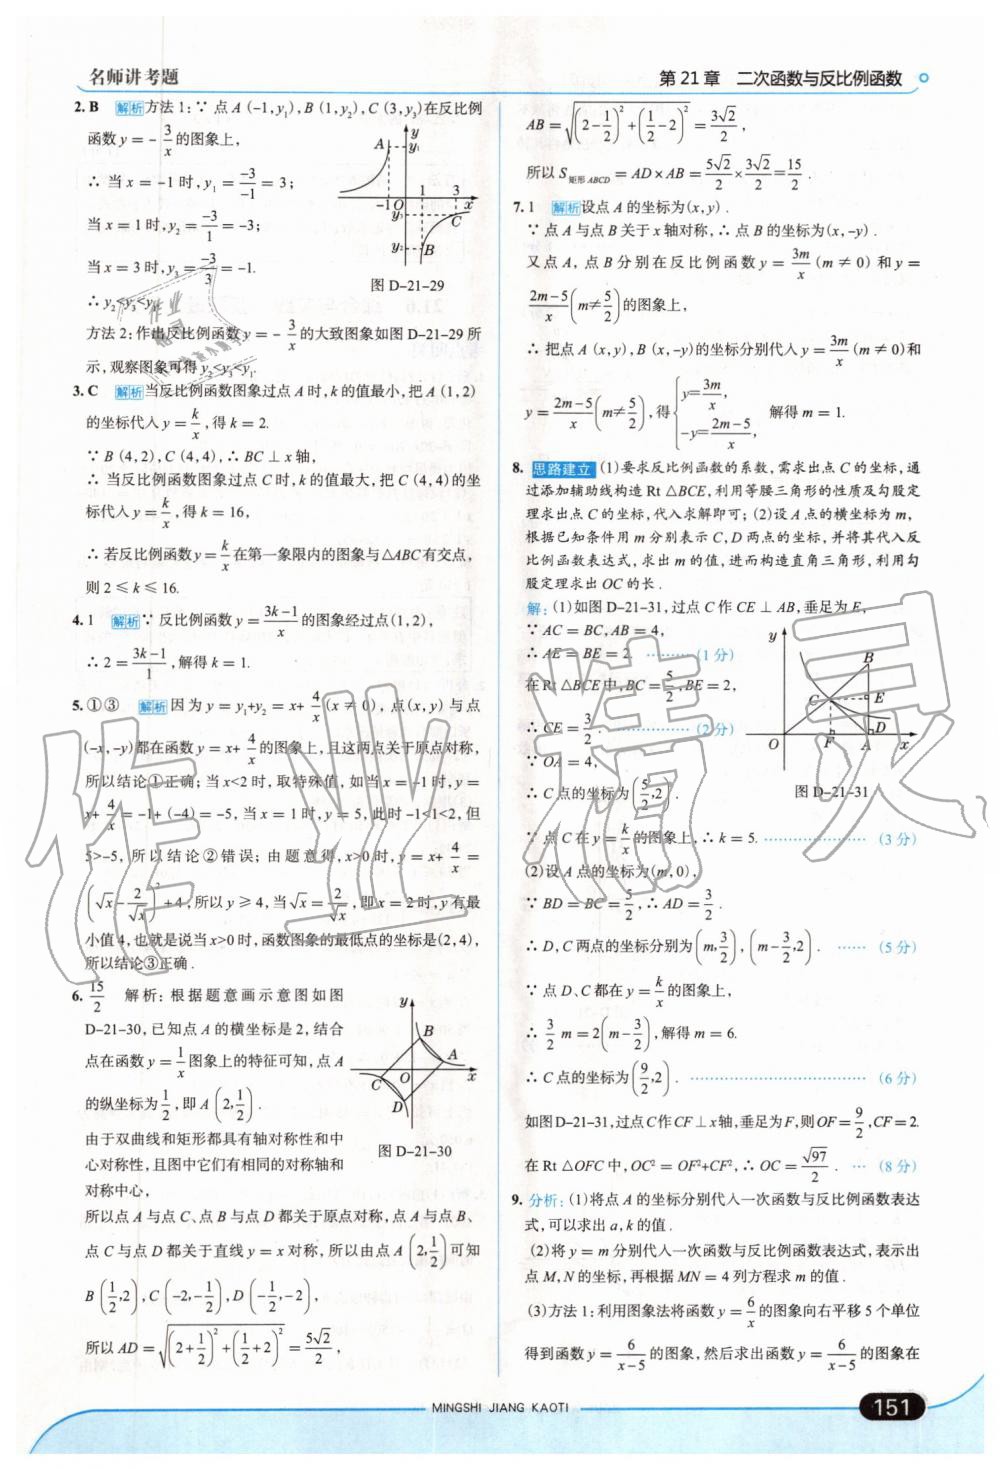 名师讲考题
第 21 章　二次函数与反比例函数
2. B　解析 方法 1：∵ 点 A (-1,y₁),B (1,y₂),C (3,y₃)在反比例
函数 y = - 3/x 的图象上，
∴ 当 x = -1 时, y₁ = -3/-1 = 3；
当 x = 1 时, y₂ = -3/1 = -3；
当 x = 3 时, y₃ = -3/3 = -1.
∴ y₂<y₃<y₁.
图 D-21-29
方法 2：作出反比例函数 y = - 3/x 的大致图象如图 D-21-29 所
示, 观察图象可得 y₂<y₃<y₁.
3. C　解析 当反比例函数图象过点 A 时, k 的值最小, 把 A (1,2)
的坐标代入 y = k/x , 得 k = 2.
∵ B (4,2), C (4,4), ∴ BC ⊥ x 轴,
∴ 当反比例函数图象过点 C 时, k 的值最大, 把 C (4,4) 的坐
标代入 y = k/x , 得 k = 16,
∴ 若反比例函数 y = k/x 在第一象限内的图象与△ABC 有交点,
则 2 ⩽ k ⩽ 16.
4. 1　解析 ∵ 反比例函数 y = 3k-1/x 的图象经过点(1,2),
∴ 2 = 3k-1/1 , 解得 k = 1.
5. ①③　解析 因为 y = y₁+y₂ = x+ 4/x (x ≠ 0), 点(x,y) 与点
(-x,-y)都在函数 y = x+ 4/x 的图象上, 且这两点关于原点对称,
所以结论①正确；当 x<2 时, 取特殊值, 如当 x = -1 时, y =
x+ 4/x = -1+ (-4) = -5, 当 x = 1 时, y = 5, 此时 -1<1<2, 但
5>-5, 所以结论②错误；由题意得, x>0 时, y = x+ 4/x =
(√x - 2/√x)²+4, 所以 y ⩾ 4, 当 √x = 2/√x , 即 x = 2 时, y 有最
小值 4, 也就是说当 x>0 时, 函数图象的最低点的坐标是(2,4),
所以结论③正确.
6. 15/2　解析：根据题意画示意图如图
D-21-30, 已知点 A 的横坐标是 2, 结合
点在函数 y = 1/x 图象上的特征可知, 点 A
的纵坐标为 1/2 , 即 A (2, 1/2) .
由于双曲线和矩形都具有轴对称性和中
心对称性, 且图中它们有相同的对称轴和
对称中心,
图 D-21-30
所以点 A 与点 C、点 B 与点 D 都关于原点对称, 点 A 与点 B、
点 C 与点 D 都关于直线 y = x 对称, 所以由点 A (2, 1/2) 可知
B (1/2, 2), C (-2, - 1/2), D (- 1/2, -2),
所以 AD = √((2+ 1/2)²+(1/2+2)²) = 5√2/2 ,
AB = √((2- 1/2)²+(1/2-2)²) = 3√2/2 ,
所以 S矩形ABCD = AD×AB = 5√2/2 × 3√2/2 = 15/2 .
7. 1　解析 设点 A 的坐标为(x,y) .
∵ 点 A 与点 B 关于 x 轴对称, ∴ 点 B 的坐标为(x,-y) .
又点 A, 点 B 分别在反比例函数 y = 3m/x (m ≠ 0) 和 y =
2m-5/x (m≠ 5/2) 的图象上,
∴ 把点 A (x,y), B (x,-y)的坐标分别代入 y = 3m/x (m ≠ 0)和
y = 2m-5/x (m≠ 5/2), 得 { y= 3m/x , -y= 2m-5/x , 解得 m = 1.
8. 思路建立 (1)要求反比例函数的系数, 需求出点 C 的坐标, 通
过添加辅助线构造 Rt △BCE, 利用等腰三角形的性质及勾股定
理求出点 C 的坐标, 代入求解即可；(2)设 A 点的横坐标为 m,
根据已知条件用 m 分别表示 C, D 两点的坐标, 并将其代入反
比例函数表达式, 求出 m 的值, 进而构造直角三角形, 利用勾
股定理求出 OC 的长.
解：(1)如图 D-21-31, 过点 C 作 CE ⊥ AB, 垂足为 E,
∵ AC = BC, AB = 4,
∴ AE = BE = 2. ……… (1 分)
在 Rt △BCE 中, BC = 5/2 , BE = 2,
∴ CE = 3/2 . ……… (2 分)
∵ OA = 4,
∴ C 点的坐标为 (5/2, 2) .
图 D-21-31
∵ 点 C 在 y = k/x 的图象上, ∴ k = 5. ……… (3 分)
(2)设 A 点的坐标为(m,0),
∵ BD = BC = 5/2 , ∴ AD = 3/2 .
∴ D, C 两点的坐标分别为 (m, 3/2), (m- 3/2, 2) . …… (5 分)
∵ 点 D、C 都在 y = k/x 的图象上,
∴ 3/2 m = 2(m- 3/2), 解得 m = 6.
∴ C 点的坐标为 (9/2, 2) . ……… (6 分)
如图 D-21-31, 过点 C 作 CF⊥x 轴, 垂足为 F, 则 OF = 9/2 , CF = 2.
在 Rt △OFC 中, OC² = OF²+CF², ∴ OC = √97/2 . … (8 分)
9. 分析：(1)将点 A 的坐标分别代入一次函数与反比例函数表达
式, 可以求出 a, k 的值.
(2)将 y = m 分别代入一次函数与反比例函数表达式, 表示出
点 M, N 的坐标, 再根据 MN = 4 列方程求 m 的值.
(3)方法 1：利用图象法将函数 y = 6/x 的图象向右平移 5 个单位
得到函数 y = 6/x-5 的图象, 然后求出函数 y = 6/x-5 的图象在
MINGSHI JIANG KAOTI
151
作业精灵